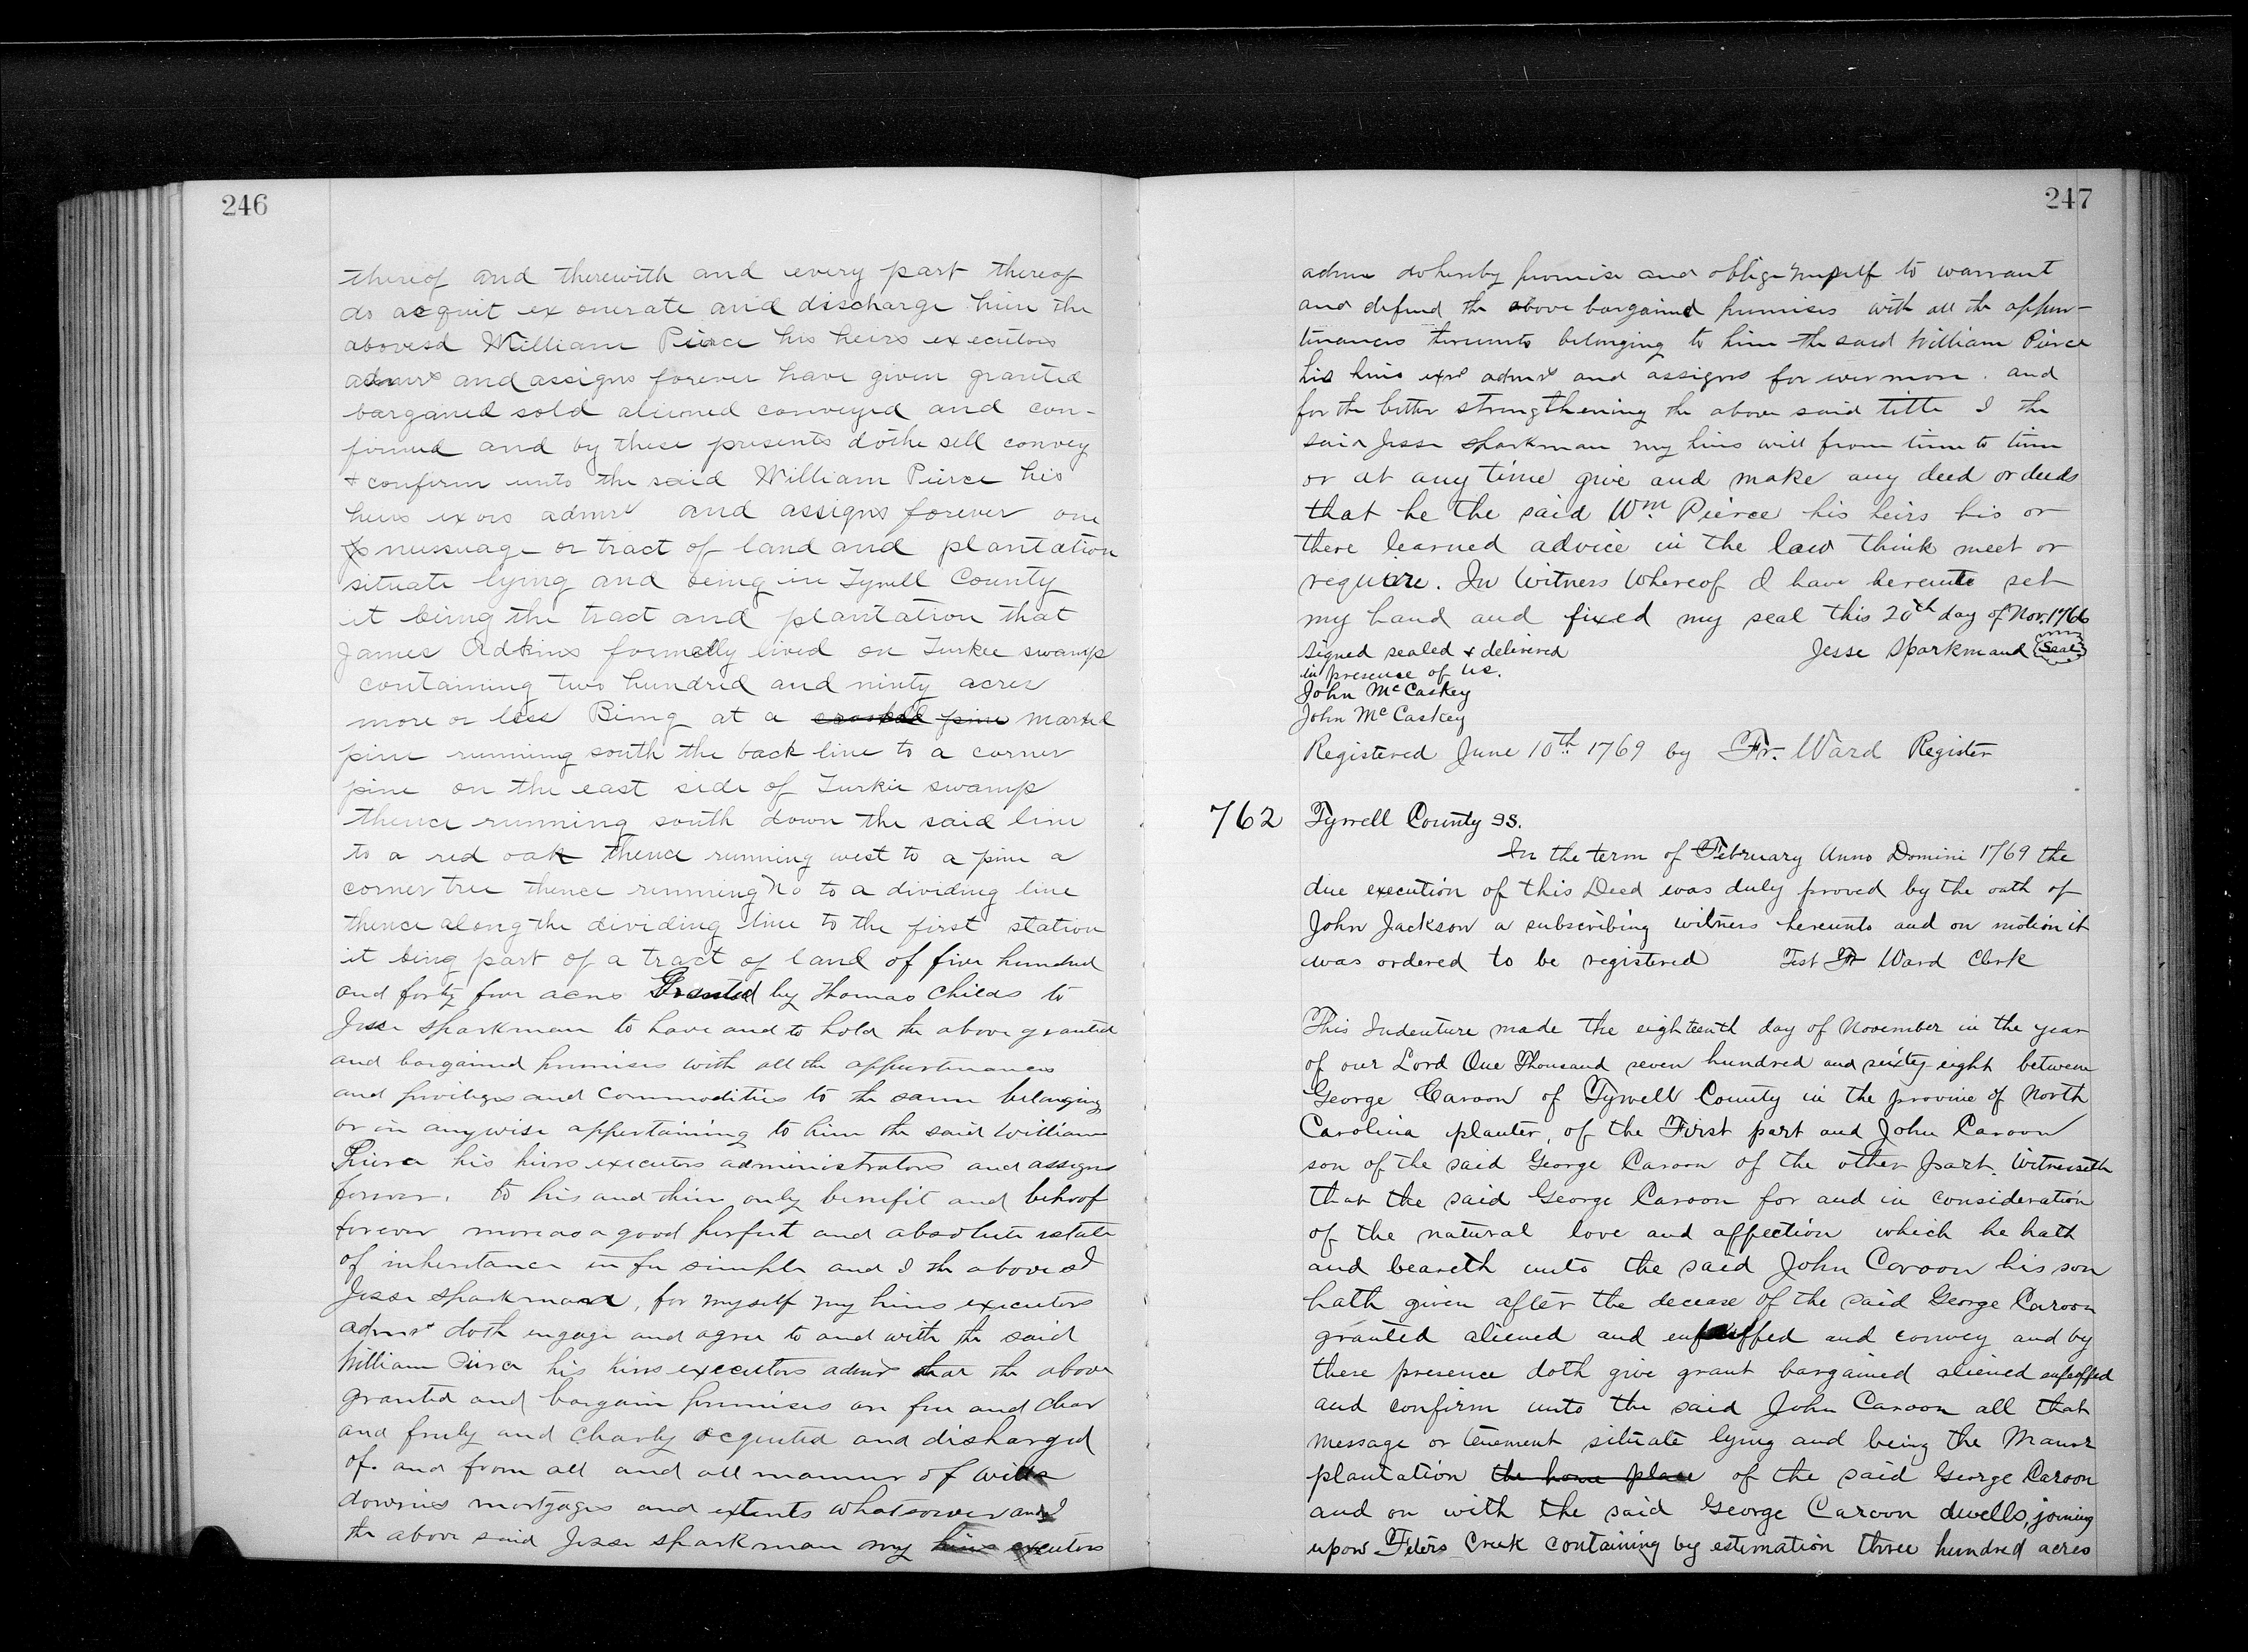 246
thereof and therewith and every part thereof
do acquit ex onerate and discharge him the
abovesd William Pierce his heirs executors
admrs and assigns forever have given granted
barganed sold aliened conveyed and con-
firmed and by these presents dothe sell convey
& confirm unto the said William Pierce his
heirs exors admrs and assigns forever one
messuage or tract of land and plantation
situate lying and being in Tyrrell County
it being the tract and plantation that
James Adkins formelly lived on Turkee swamp
containing two hundred and ninty acres
more or less Bing at a crooked pine marked
pine running south the back line to a corner
pine on the east side of Turkie swamp
thence running south down the said line
to a red oak thence running west to a pine a
corner tree thence running No to a dividing line
thence along the dividing line to the first station
it being part of a tract of land of five hundred
and forty four acres Granted by Thomas Childs to
Jesse Sparkman to have and to hold the above granted
and bargained premises with all the appurtenances
and privileges and Commodities to the same belonging
or in anywise appertaining to him the said William
Pierce his heirs executors administrators and assigns
forever. to his and their only benefit and behoof
forever more as a good perfect and absolute estate
of inheritance in fee simple and I the above sd
Jesse Sparkmand, for myself my heirs executors
admrs doth engage and agree to and with the said
William Pierce his heirs executors admrs that the above
granted and bargain premises are free and clear
and freely and clearly acquited and discharged
of. and from all and all manner of wills
dowries mortgages and extents whatsoever and I
the above said Jesse Sparkman my heirs executors
247
admrs do hereby promise and oblige myself to warrant
and defend the above bargained premises with all the appur-
tenances thereunto belonging to him the said William Pierce
his heirs exrs admrs and assigns for ever more. and
for the better strengthening the above said title I the
said Jesse Sparkman my heirs will from time to time
or at any time give and make any deed or deeds
that he the said Wm Pierce his heirs his or
there learned advice in the law think meet or
require. In Witness Whereof I have hereunto set
my hand and fixed my seal this 20th day of Nov. 1766
Signed sealed & delivered Jesse Sparkmand Seal
in presence of us.
John McCaskey
John McCaskey
Registered June 10th 1769 by Fr. Ward Register
762 Tyrrell County SS.
In the term of February Anno Domini 1769 the
due execution of this Deed was duly proved by the oath of
John Jackson a subscribing witness hereunto and on motion it
was ordered to be registered Test Fr Ward Clerk
This Indenture made the eighteenth day of November in the year
of our Lord One Thousand seven hundred and sixty eight between
George Caroon of Tyrrell County in the provine of North
Carolina planter, of the First part and John Caroon
son of the said George Caroon of the other part. Witnesseth
that the said George Caroon for and in consideration
of the natural love and affection which he hath
and beareth unto the said John Caroon his son
hath given after the decease of the said George Caroon
granted aliened and and convey and by
these presence doth give grant bargained aliened enfeoffed
and confirm unto the said John Caroon all that
message or tenement situate lying and being the Manor
plantation the home place of the said George Caroon
and on with the said George Caroon dwells, joining
upon Creek containing by estimation three hundred acres